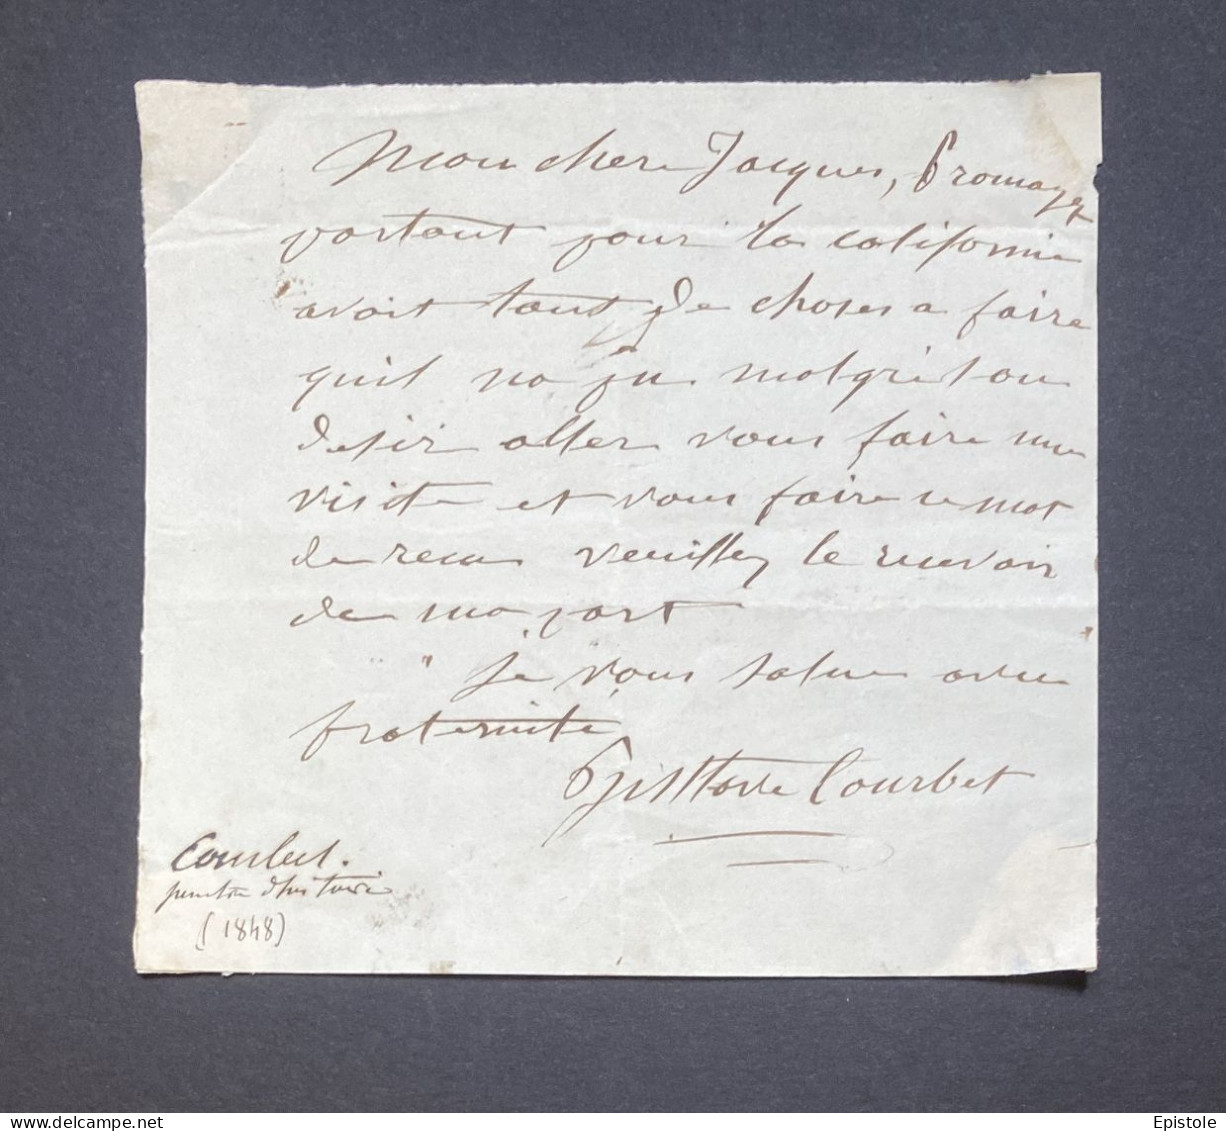 Mon cher Jacques, Promayet
partant pour la californie
avait tant de choses a faire
quil na pu malgré son
desir aller vous faire une
visite et vous faire ce mot
de recu veuillez le recevoir
de ma part
" je vous salue avec "
fraternite
Gusttave Courbet
Courbet.
peintre d'histoire
(1848)
www.delcampe.net
Epistole